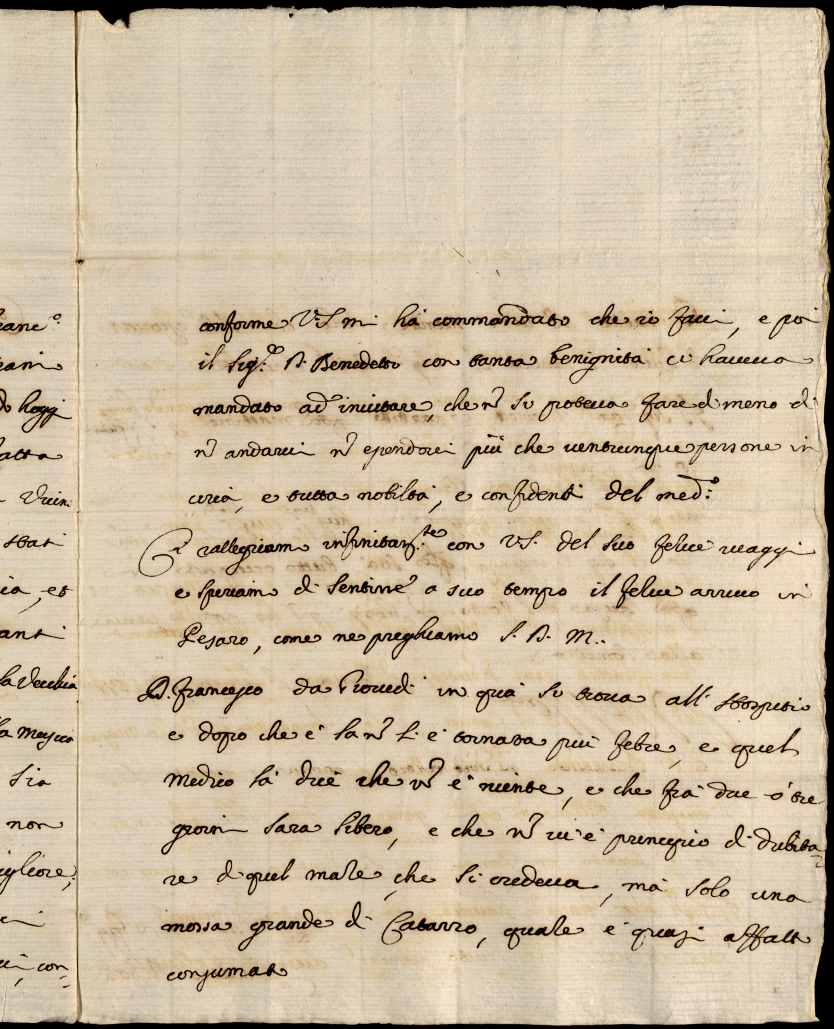 ranc:º
rani
do hoggi
fatta
Vicin
stati
ia, et
anti
la Vecchia
la mosca
sia
non
igliore;
ci
ui, con=
conforme V.S. mi hà commandato che io facci, e poi
il Sig.re D. Benedetto con tanta benignità ci haueua
mandato ad inuitare, che ñ si poteua fare di meno di
ñ andarui ñ essendoci più che uenticinque persone in
circa, e tutta nobiltà, e confidenti del med:º
Ci rallegriamo infinitam.te con V.S. del suo felice uaggio
e speriamo di sentirne a suo tempo il felice arriuo in
Pesaro, come ne preghiamo S. D. M.
D. Francesco da Giouedi in quà si troua all'
e dopo che è là ñ li è tornata più febre, e quel
Medico là dice che ñ è niente, e che frà due ò tre
giorni sara libero, e che ñ ui è principio di dubita
re di quel male, che si credeua, mà solo una
mossa grande di Catarro, quale è quasi affatto
consumato